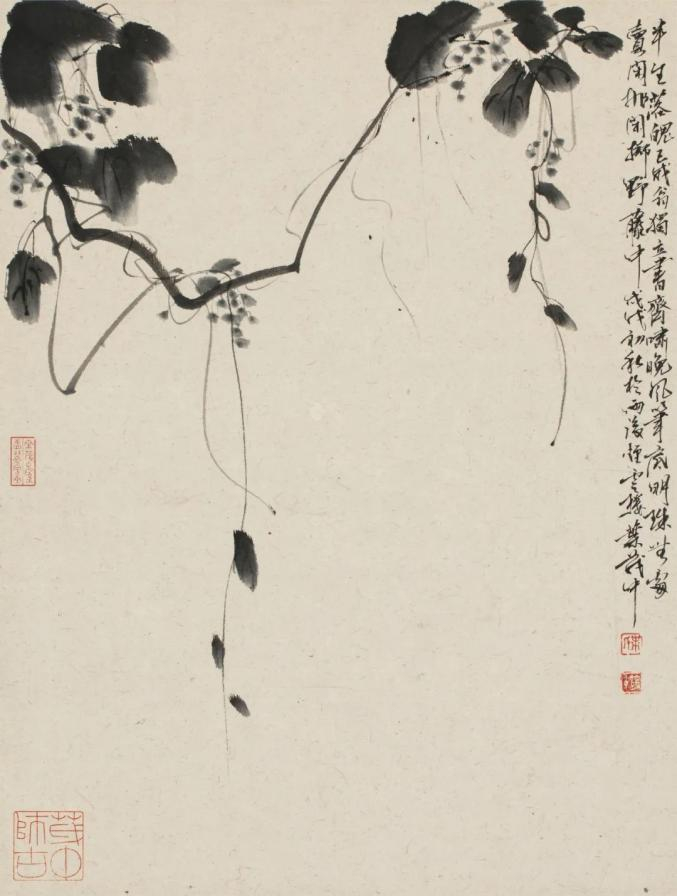 半生落魄已成翁獨立書齋嘯晚風筆底明珠無處
賣閑拋閑擲野藤中戊戌初秋於雨後煙雲樓葉茂中
茂中
師古